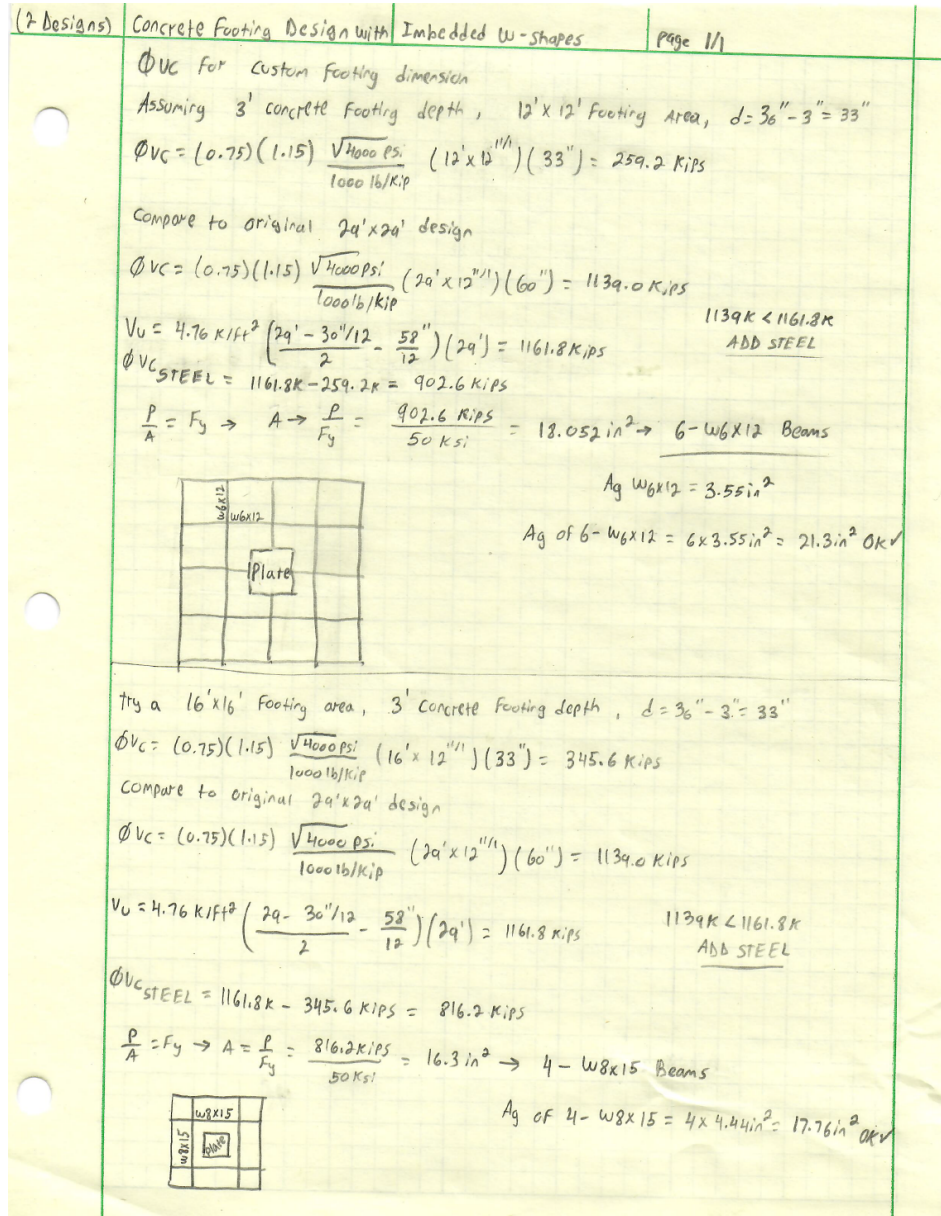 (2 Designs) Concrete Footing Design with Imbedded W-shapes page 1/1
ΦVC For custom footing dimension
Assuming 3' concrete footing depth, 12' x 12' Footing Area, d= 36" - 3" = 33"
ΦVC = (0.75)(1.15) √4000 psi / 1000 lb/kip (12' x 12"/1)(33") = 259.2 Kips
Compare to original 29'x29' design
ΦVC = (0.75)(1.15) √4000psi / 1000lb/kip (29' x 12"/1)(60") = 1139.0 Kips
1139K < 1161.8K
ADD STEEL
Vu = 4.76 K/ft² (29' - 30"/12 / 2 - 58" / 12)(29') = 1161.8Kips
ΦVC STEEL = 1161.8K - 259.2K = 902.6 Kips
P/A = Fy → A → P/Fy = 902.6 Kips / 50 Ksi = 18.052 in² → 6-W6X12 Beams
Ag W6X12 = 3.55in²
Ag of 6-W6X12 = 6x3.55in² = 21.3in² OK✓
W6X12
W6X12
Plate
try a 16'x16' Footing area, 3' Concrete Footing depth, d = 36" - 3" = 33"
ΦVC = (0.75)(1.15) √4000psi / 1000lb/kip (16' x 12"/1)(33") = 345.6 Kips
Compare to original 29'x29' design
ΦVC = (0.75)(1.15) √4000 psi / 1000lb/kip (29' x 12"/1)(60") = 1139.0 Kips
Vu = 4.76 K/Ft² (29 - 30"/12 / 2 - 58" / 12)(29') = 1161.8 Kips
1139K < 1161.8K
ADD STEEL
ΦVC STEEL = 1161.8K - 345.6 Kips = 816.2 Kips
P/A = Fy → A = P/Fy = 816.2Kips / 50Ksi = 16.3 in² → 4 - W8x15 Beams
Ag of 4-W8x15 = 4x 4.44in² = 17.76in² OK✓
W8X15
W8X15
Plate